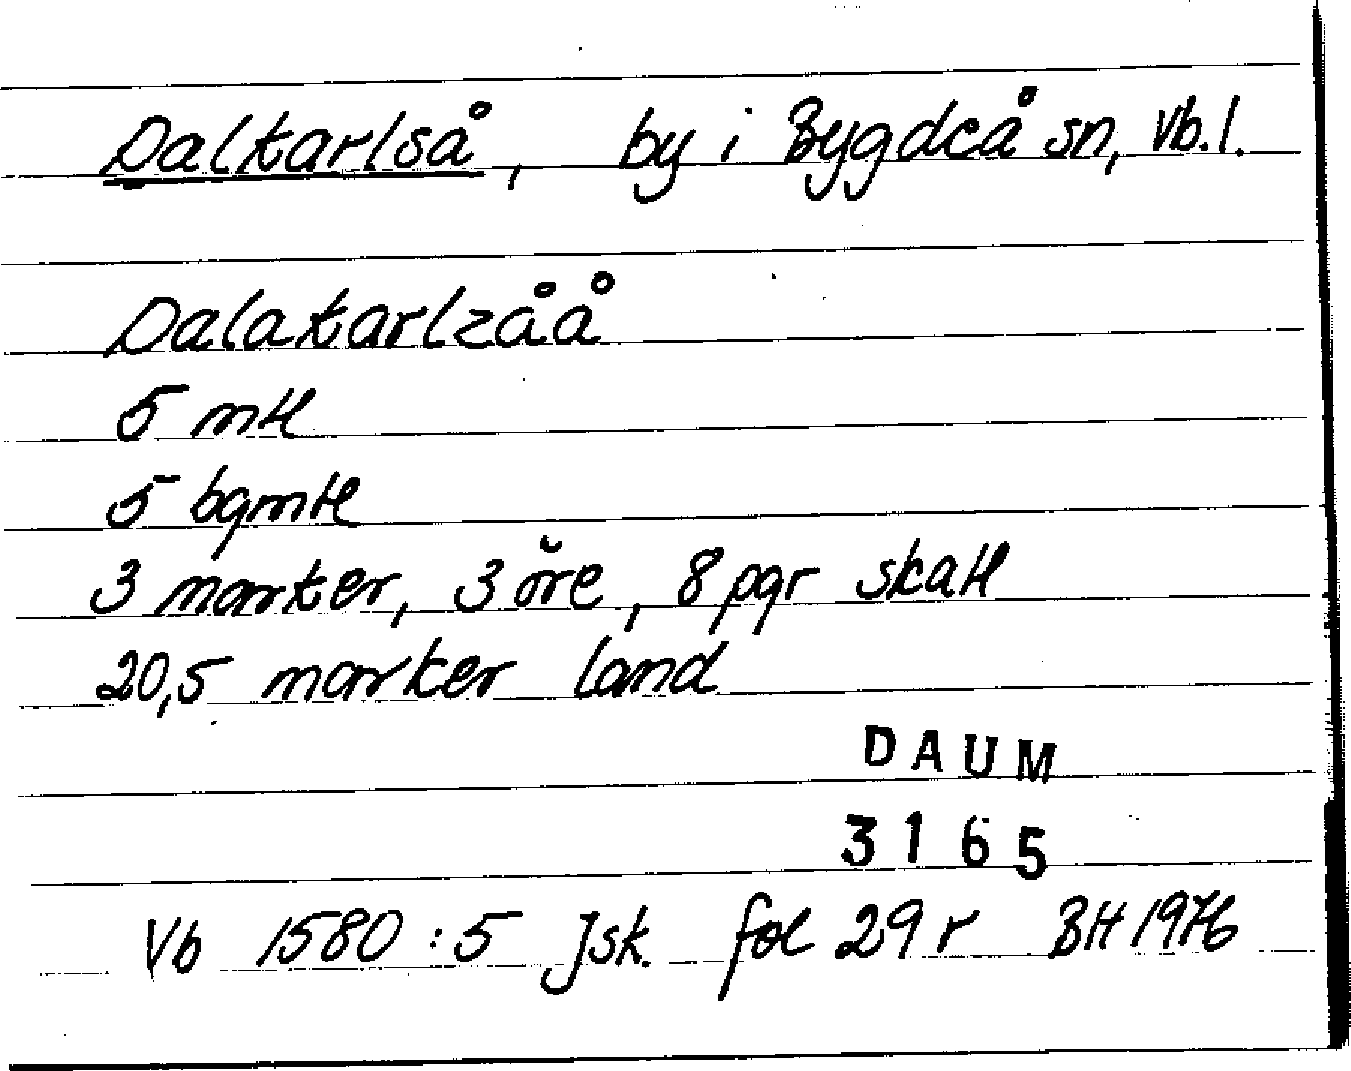 Daltarlså, by i Bygdeå sn, Vb.l.
Dalatarlzåå
5 mtl
5 bgmtl
3 marker, 3 öre, 8 pgr skatt
20,5 marker land
DAUM
3165
Vb 1580:5 Jsk. fol 29 r BH 1976